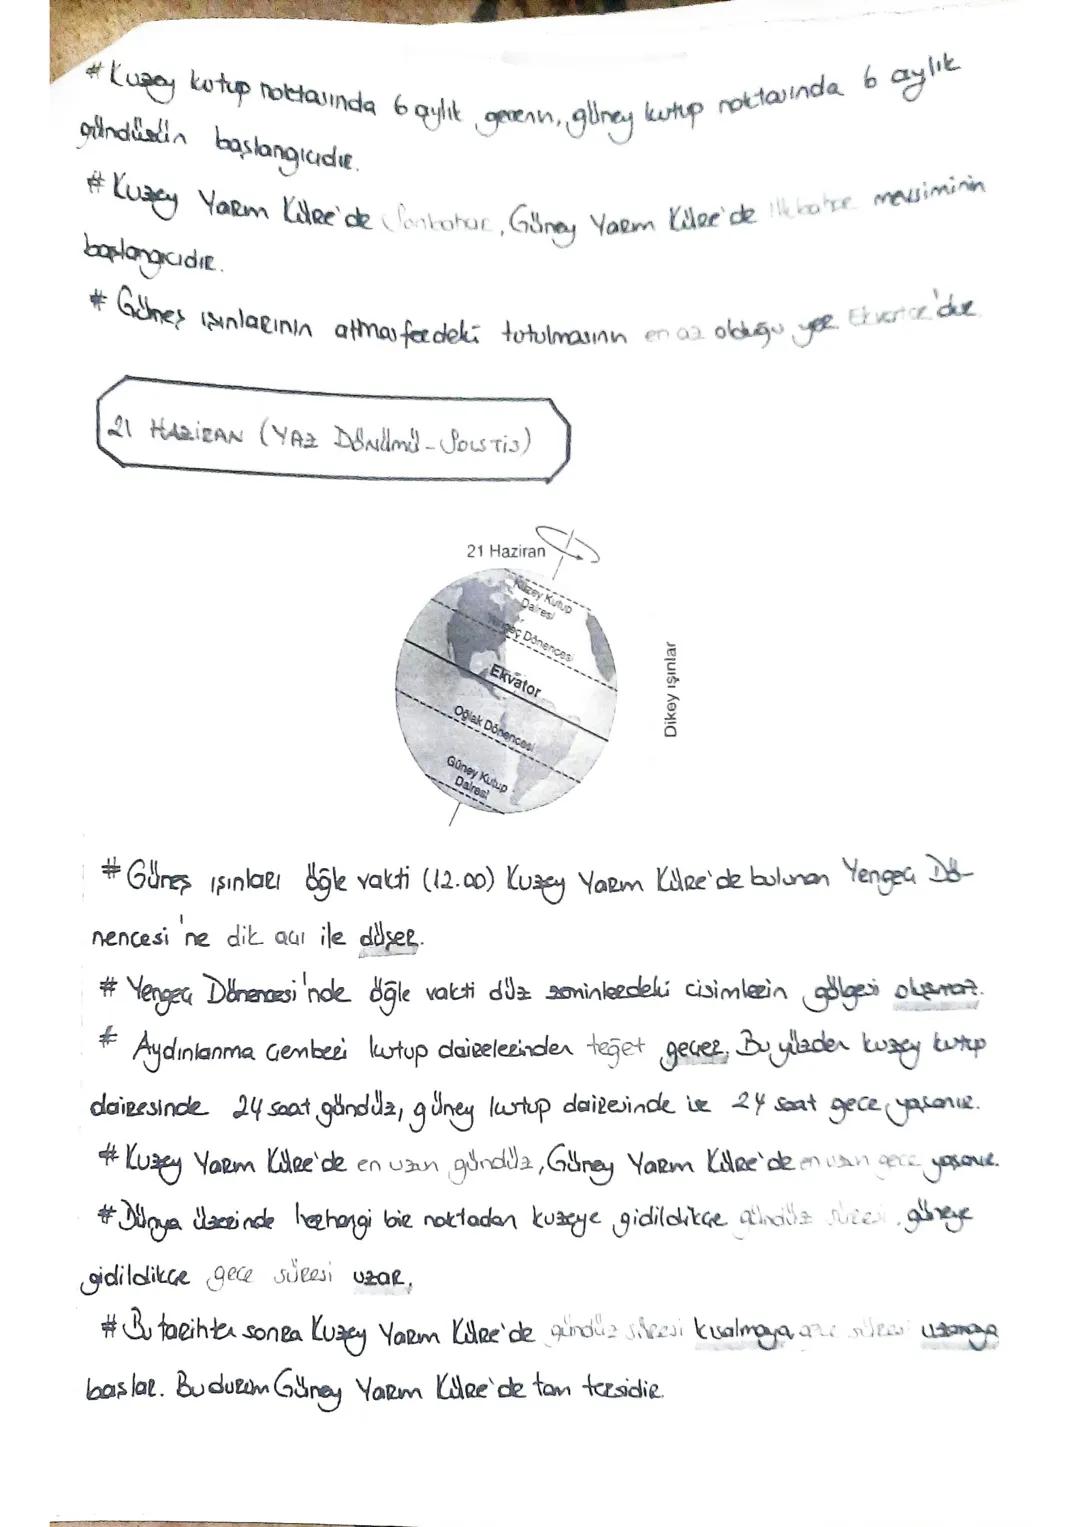 # Kuzey kutup noktasında 6 aylık gecenin, güney kutup noktasında 6 aylık
gündüzün başlangıcıdır.
# Kuzey Yarım Küre'de Sonbahar, Güney Yarım Küre'de İlkbahar mevsiminin
başlangıcıdır.
# Güneş ışınlarının atmosferdeki tutulmasının en az olduğu yer Ekvator'dur.
21 HAZİRAN (YAZ DÖNÜMÜ-SOLSTİS)
21 Haziran
Kuzey Kutup
Dairesi
Yengeç Dönencesi
Ekvator
Oğlak Dönencesi
Güney Kutup
Dairesi
Dikey ışınlar
# Güneş ışınları öğle vakti (12.00) Kuzey Yarım Küre'de bulunan Yengeç Dö-
nencesi'ne dik açı ile düşer.
# Yengeç Dönencesi'nde öğle vakti düz zeminlerdeki cisimlerin gölgesi oluşmaz.
# Aydınlanma çemberi kutup dairelerinden teğet geçer. Bu yüzden kuzey kutup
dairesinde 24 saat gündüz, güney kutup dairesinde ise 24 saat gece yaşanır.
# Kuzey Yarım Küre'de en uzun gündüz, Güney Yarım Küre'de en uzun gece yaşanır.
# Dünya üzerinde herhangi bir noktadan kuzeye gidildikçe gündüz süresi, güneye
gidildikçe gece süresi uzar.
# Bu tarihten sonra Kuzey Yarım Küre'de gündüz süresi kısalmaya, gece süresi uzamaya
başlar. Bu durum Güney Yarım Küre'de tam tersidir.